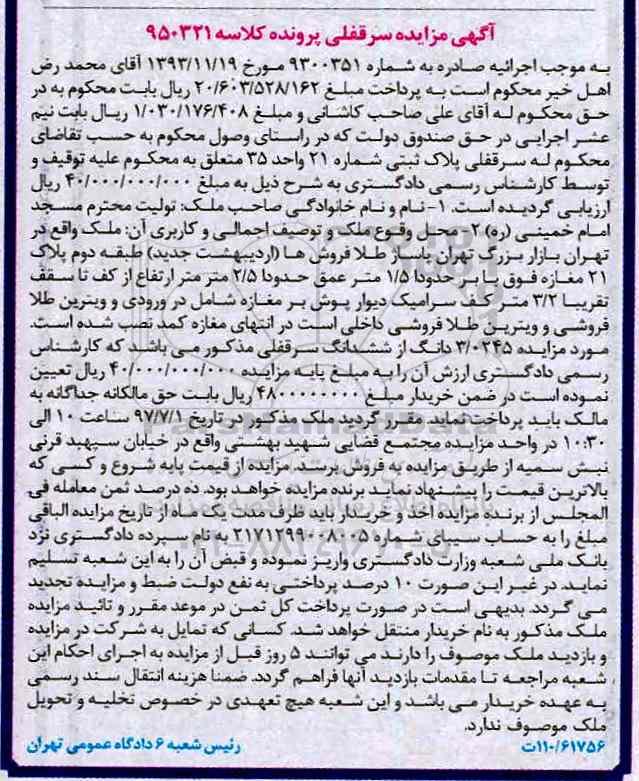 آگهی مزایده سرقفلی پرونده کلاسه ۹۵۰۳۲۱
به موجب اجرائیه صادره به شماره ۹۳۰۰۳۵۱ مورخ ۱۳۹۳/۱۱/۱۹ آقای محمد رض
اهل خبر محکوم است به پرداخت مبلغ ۲۰/۶۰۳/۵۲۸/۱۶۲ ریال بابت محکوم به در
حق محکوم له آقای علی صاحب کاشانی و مبلغ ۱/۰۳۰/۱۷۶/۴۰۸ ریال بابت نیم
عشر اجرایی در حق صندوق دولت که در راستای وصول محکوم به حسب تقاضای
محکوم له سرقفلی پلاک ثبتی شماره ۲۱ واحد ۳۵ متعلق به محکوم علیه توقیف و
توسط کارشناس رسمی دادگستری به شرح ذیل به مبلغ ۴۰/۰۰۰/۰۰۰/۰۰۰ ریال
ارزیابی گردیده است. ۱- نام و نام خانوادگی صاحب ملک: تولیت محترم مسجد
امام خمینی (ره) ۲- محل وقوع ملک و توصیف اجمالی و کاربری آن: ملک واقع در
تهران بازار بزرگ تهران پاساژ طلا فروش ها (اردیبهشت جدید) طبقه دوم پلاک
۲۱ مغازه فوق با بر حدودا ۱/۵ متر عمق حدودا ۲/۵ متر متر ارتفاع از کف تا سقف
تقریبا ۳/۲ متر کف سرامیک دیوار پوش بر مغازه شامل در ورودی و ویترین طلا
فروشی و ویترین طلا فروشی داخلی است در انتهای مغازه کمد نصب شده است.
مورد مزایده ۳/۰۲۴۵ دانگ از ششدانگ سرقفلی مذکور می باشد که کارشناس
رسمی دادگستری ارزش آن را به مبلغ پایه مزایده ۴۰/۰۰۰/۰۰۰/۰۰۰ ریال تعیین
نموده است در ضمن خریدار مبلغ ۴۸۰۰۰۰۰۰۰۰ ریال بابت حق مالکانه جداگانه به
مالک باید پرداخت نماید مقرر گردید ملک مذکور در تاریخ ۹۷/۷/۱ ساعت ۱۰ الی
۱۰:۳۰ در واحد مزایده مجتمع قضایی شهید بهشتی واقع در خیابان سپهبد قرنی
نبش سمیه از طریق مزایده به فروش برسد. مزایده از قیمت پایه شروع و کسی که
بالاترین قیمت را پیشنهاد نماید برنده مزایده خواهد بود. ده درصد ثمن معامله فی
المجلس از برنده مزایده اخذ و خریدار باید ظرف مدت یک ماه از تاریخ مزایده الباقی
مبلغ را به حساب سیبای شماره ۲۱۷۱۲۹۹۰۰۸۰۰۵ به نام سپرده دادگستری نزد
بانک ملی شعبه وزارت دادگستری واریز نموده و قبض آن را به این شعبه تسلیم
نماید. در غیر این صورت ۱۰ درصد پرداختی به نفع دولت ضبط و مزایده تجدید
می گردد. بدیهی است در صورت پرداخت کل ثمن در موعد مقرر و تائید مزایده
ملک مذکور به نام خریدار منتقل خواهد شد. کسانی که تمایل به شرکت در مزایده
و بازدید ملک موصوف را دارند می توانند ۵ روز قبل از مزایده به اجرای احکام این
شعبه مراجعه تا مقدمات بازدید آنها فراهم گردد. ضمنا هزینه انتقال سند رسمی
به عهده خریدار می باشد و این شعبه هیچ تعهدی در خصوص تخلیه و تحویل
ملک موصوف ندارد.
۱۱۰/۶۱۷۵۶ت رئیس شعبه ۶ دادگاه عمومی تهران